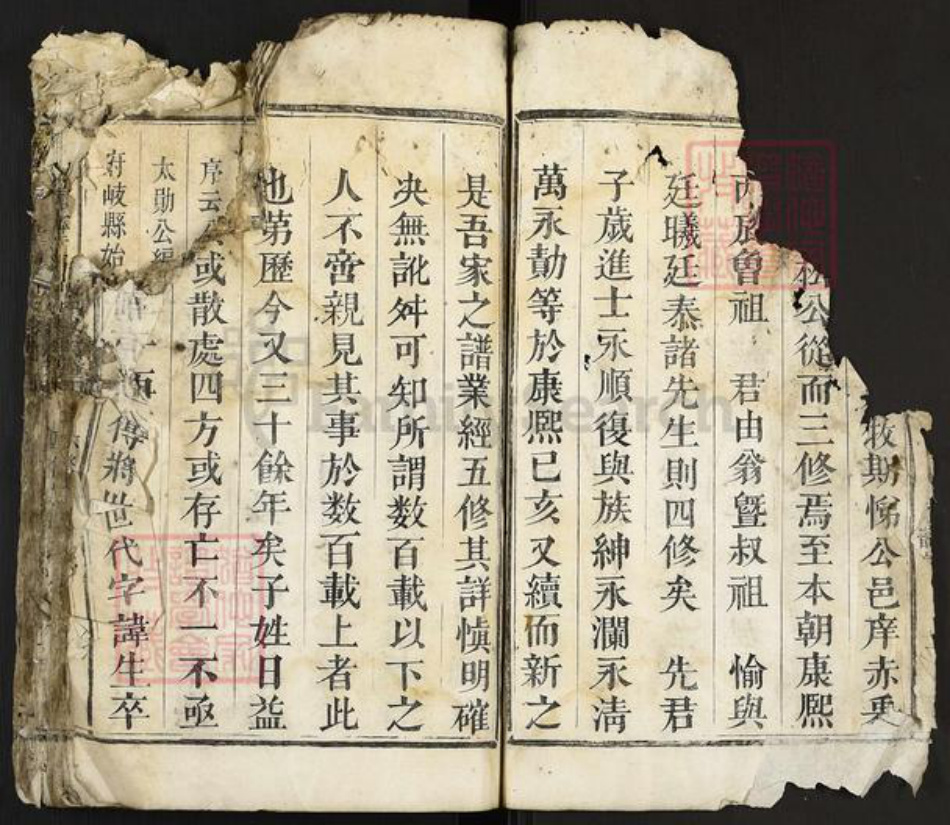 牧期悌公邑庠赤更
松公從而三修焉至本朝康熙
丙辰曾祖 君由翁曁叔祖 愉與
廷曦廷泰諸先生則四修矣 先君
子歲進士永順復與族紳永瀾永清
萬永勣等於康熙己亥又續而新之
是吾家之譜業經五修其詳慎明確
决無訛舛可知所謂数百載以下之
人不啻親見其事於数百載上者此
也苐歷今又三十餘年矣子姓日益
或散處四方或存亡不一不亟
序云
傳將世代字諱生卒
太勛公編
府岐縣始
FamilySearch